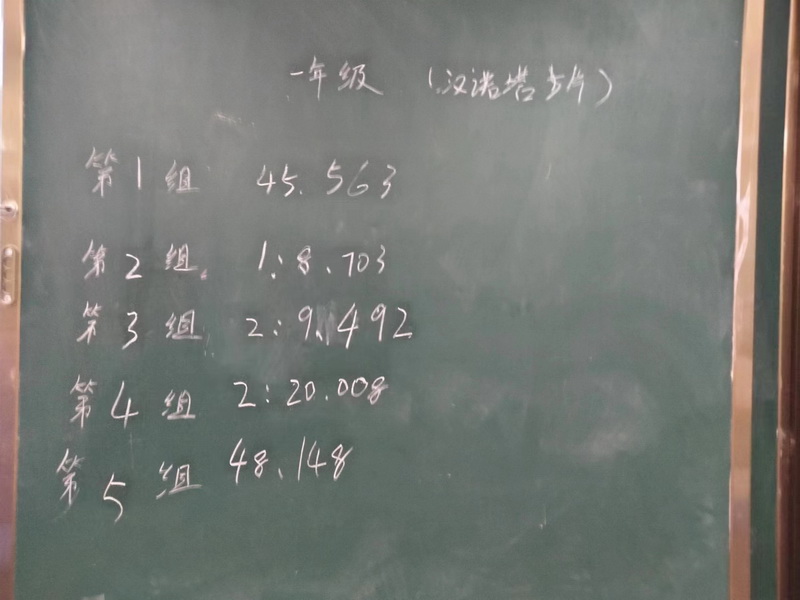 一年级 (汉诺塔5片)
第1组 45.563
第2组. 1:8.703
第3组 2:9.492
第4组 2:20.008
第5组 48.148